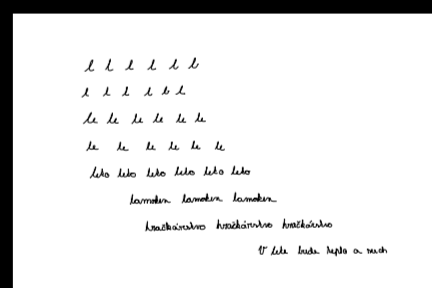 l l l l l l
l l l l l l
le le le le le le
le le le le le le
leto leto leto leto leto leto
lamelen lamelen lamelen
hračkárstvo hračkárstvo hračkárstvo
V lete bude teplo a such